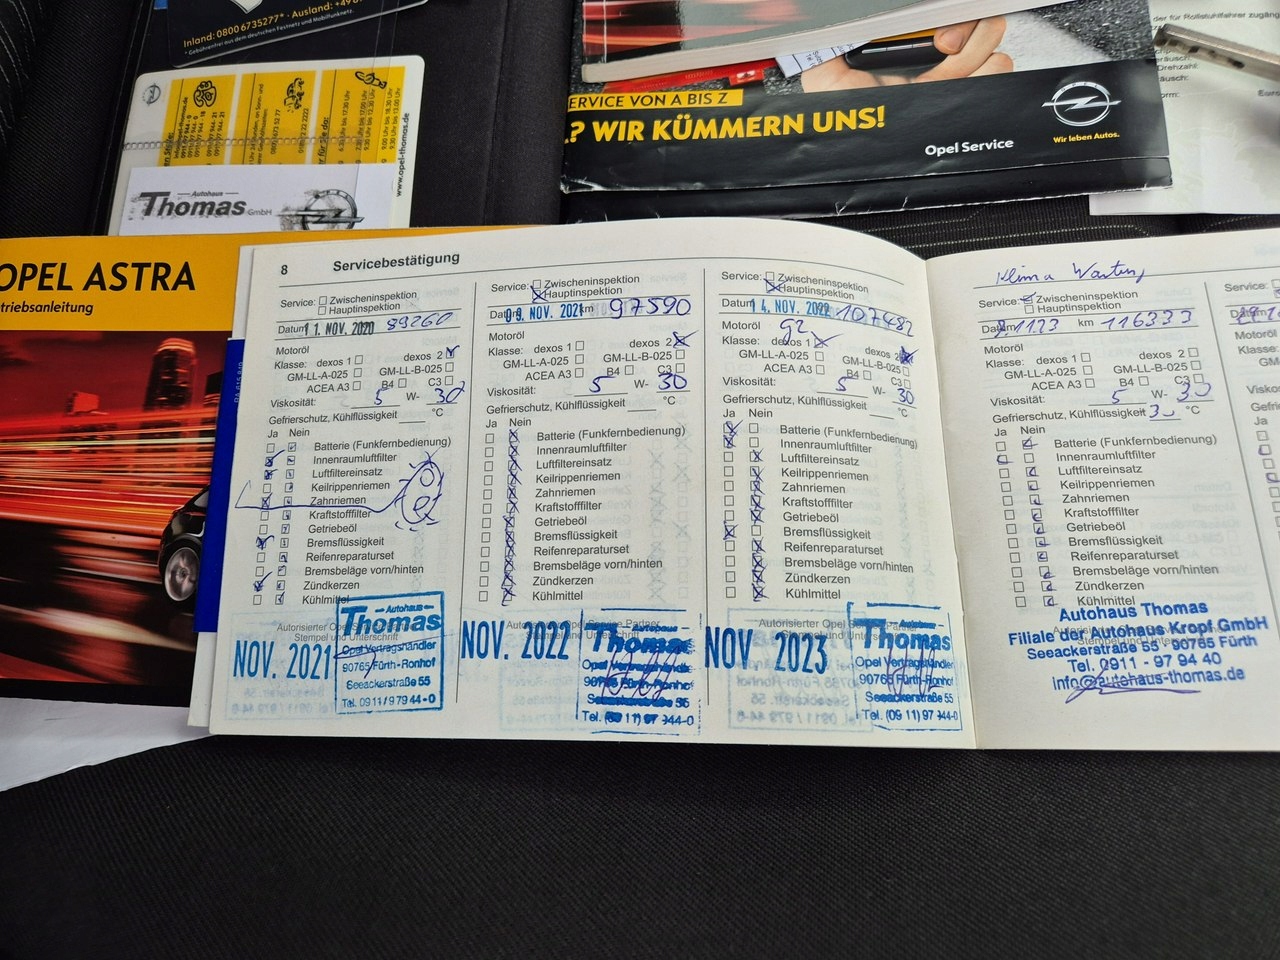 Inland: 0800 6735277* · Ausland: +49 6
* Gebührenfrei aus dem deutschen Festnetz und Mobilfunknetz.
www.opel-thomas.de
Autohaus
Thomas GmbH
ERVICE VON A BIS Z
? WIR KÜMMERN UNS!
Opel Service
Wir leben Autos.
der für Rollstuhlfahrer zugäng
Drehzahl:
OPEL ASTRA
triebsanleitung
8 Servicebestätigung
Service: Zwischeninspektion
Hauptinspektion
Datum 11. NOV. 2020 89260
Motoröl
Klasse: dexos 1 dexos 2
GM-LL-A-025 GM-LL-B-025
ACEA A3 B4 C3
Viskosität: 5 W- 30
Gefrierschutz, Kühlflüssigkeit °C
Ja Nein
Batterie (Funkfernbedienung)
Innenraumluftfilter
Luftfiltereinsatz
Keilrippenriemen
Zahnriemen
Kraftstofffilter
Getriebeöl
Bremsflüssigkeit
Reifenreparaturset
Bremsbeläge vorn/hinten
Zündkerzen
Kühlmittel
NOV. 2021
Autohaus
Thomas
Opel Vertragshändler
90765 Fürth-Ronhof
Seeackerstraße 55
Tel. 09 11 / 9 79 44 - 0
Service: Zwischeninspektion
Hauptinspektion
Datum 09. NOV. 2021 km 97590
Motoröl
Klasse: dexos 1 dexos 2
GM-LL-A-025 GM-LL-B-025
ACEA A3 B4 C3
Viskosität: 5 W- 30
Gefrierschutz, Kühlflüssigkeit °C
Ja Nein
Batterie (Funkfernbedienung)
Innenraumluftfilter
Luftfiltereinsatz
Keilrippenriemen
Zahnriemen
Kraftstofffilter
Getriebeöl
Bremsflüssigkeit
Reifenreparaturset
Bremsbeläge vorn/hinten
Zündkerzen
Kühlmittel
NOV. 2022
Autohaus
Thomas
Opel Vertragshändler
90765 Fürth-Ronhof
Seeackerstraße 55
Tel. (09 11) 97 944-0
Service: Zwischeninspektion
Hauptinspektion
Datum 14. NOV. 2022 107482
Motoröl
Klasse: dexos 1 dexos 2
GM-LL-A-025 GM-LL-B-025
ACEA A3 B4 C3
Viskosität: 5 W- 30
Gefrierschutz, Kühlflüssigkeit °C
Ja Nein
Batterie (Funkfernbedienung)
Innenraumluftfilter
Luftfiltereinsatz
Keilrippenriemen
Zahnriemen
Kraftstofffilter
Getriebeöl
Bremsflüssigkeit
Reifenreparaturset
Bremsbeläge vorn/hinten
Zündkerzen
Kühlmittel
NOV 2023
Thomas
Opel Vertragshändler
90765 Fürth-Ronhof
Seeackerstraße 55
Tel. (09 11) 97 944-0
Klima Wartung
Service: Zwischeninspektion
Hauptinspektion
km 116333
Motoröl
Klasse: dexos 1 dexos 2
GM-LL-A-025 GM-LL-B-025
ACEA A3 B4 C3
Viskosität: 5 W- 30
Gefrierschutz, Kühlflüssigkeit °C
Ja Nein
Batterie (Funkfernbedienung)
Innenraumluftfilter
Luftfiltereinsatz
Keilrippenriemen
Zahnriemen
Kraftstofffilter
Getriebeöl
Bremsflüssigkeit
Reifenreparaturset
Bremsbeläge vorn/hinten
Zündkerzen
Kühlmittel
Autohaus Thomas
Filiale der Autohaus Kropf GmbH
Seeackerstraße 55 - 90765 Fürth
Tel. 0911 - 97 94 40
info@autohaus-thomas.de